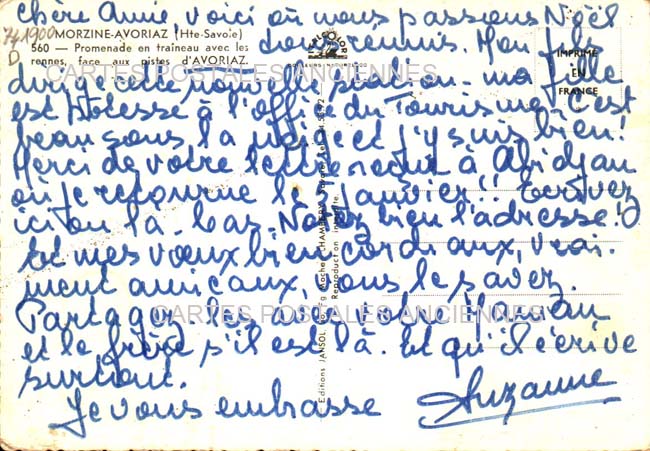 chère Amie, voici où nous passions Noël
741900
D
MORZINE-AVORIAZ (Hte-Savoie)
560 — Promenade en traîneau avec les
rennes, face aux pistes d'AVORIAZ.
tous réunis. Mon fils
IMPRIMÉ
EN
FRANCE
CARTES POSTALES ANCIENNES
dirige cette nouvelle station - ma fille
est hôtesse à l'office du Tourisme. C'est
beau sous la neige et j'y suis bien!
Merci de votre lettre reçue à Abidjan
où je retourne le janvier!! Ecrivez
ici ou là-bas. Notez bien l'adresse!
Et mes vœux bien cordiaux, vrai-
ment amicaux, vous le savez.
CARTES POSTALES ANCIENNES
Partagez-les avec votre Maman
et le frère s'il est là. Et qu'il écrive
surtout.
Je vous embrasse
Suzanne
Editions JANSOL, Fg Maché CHAMBÉRY
Reproduction Interdite